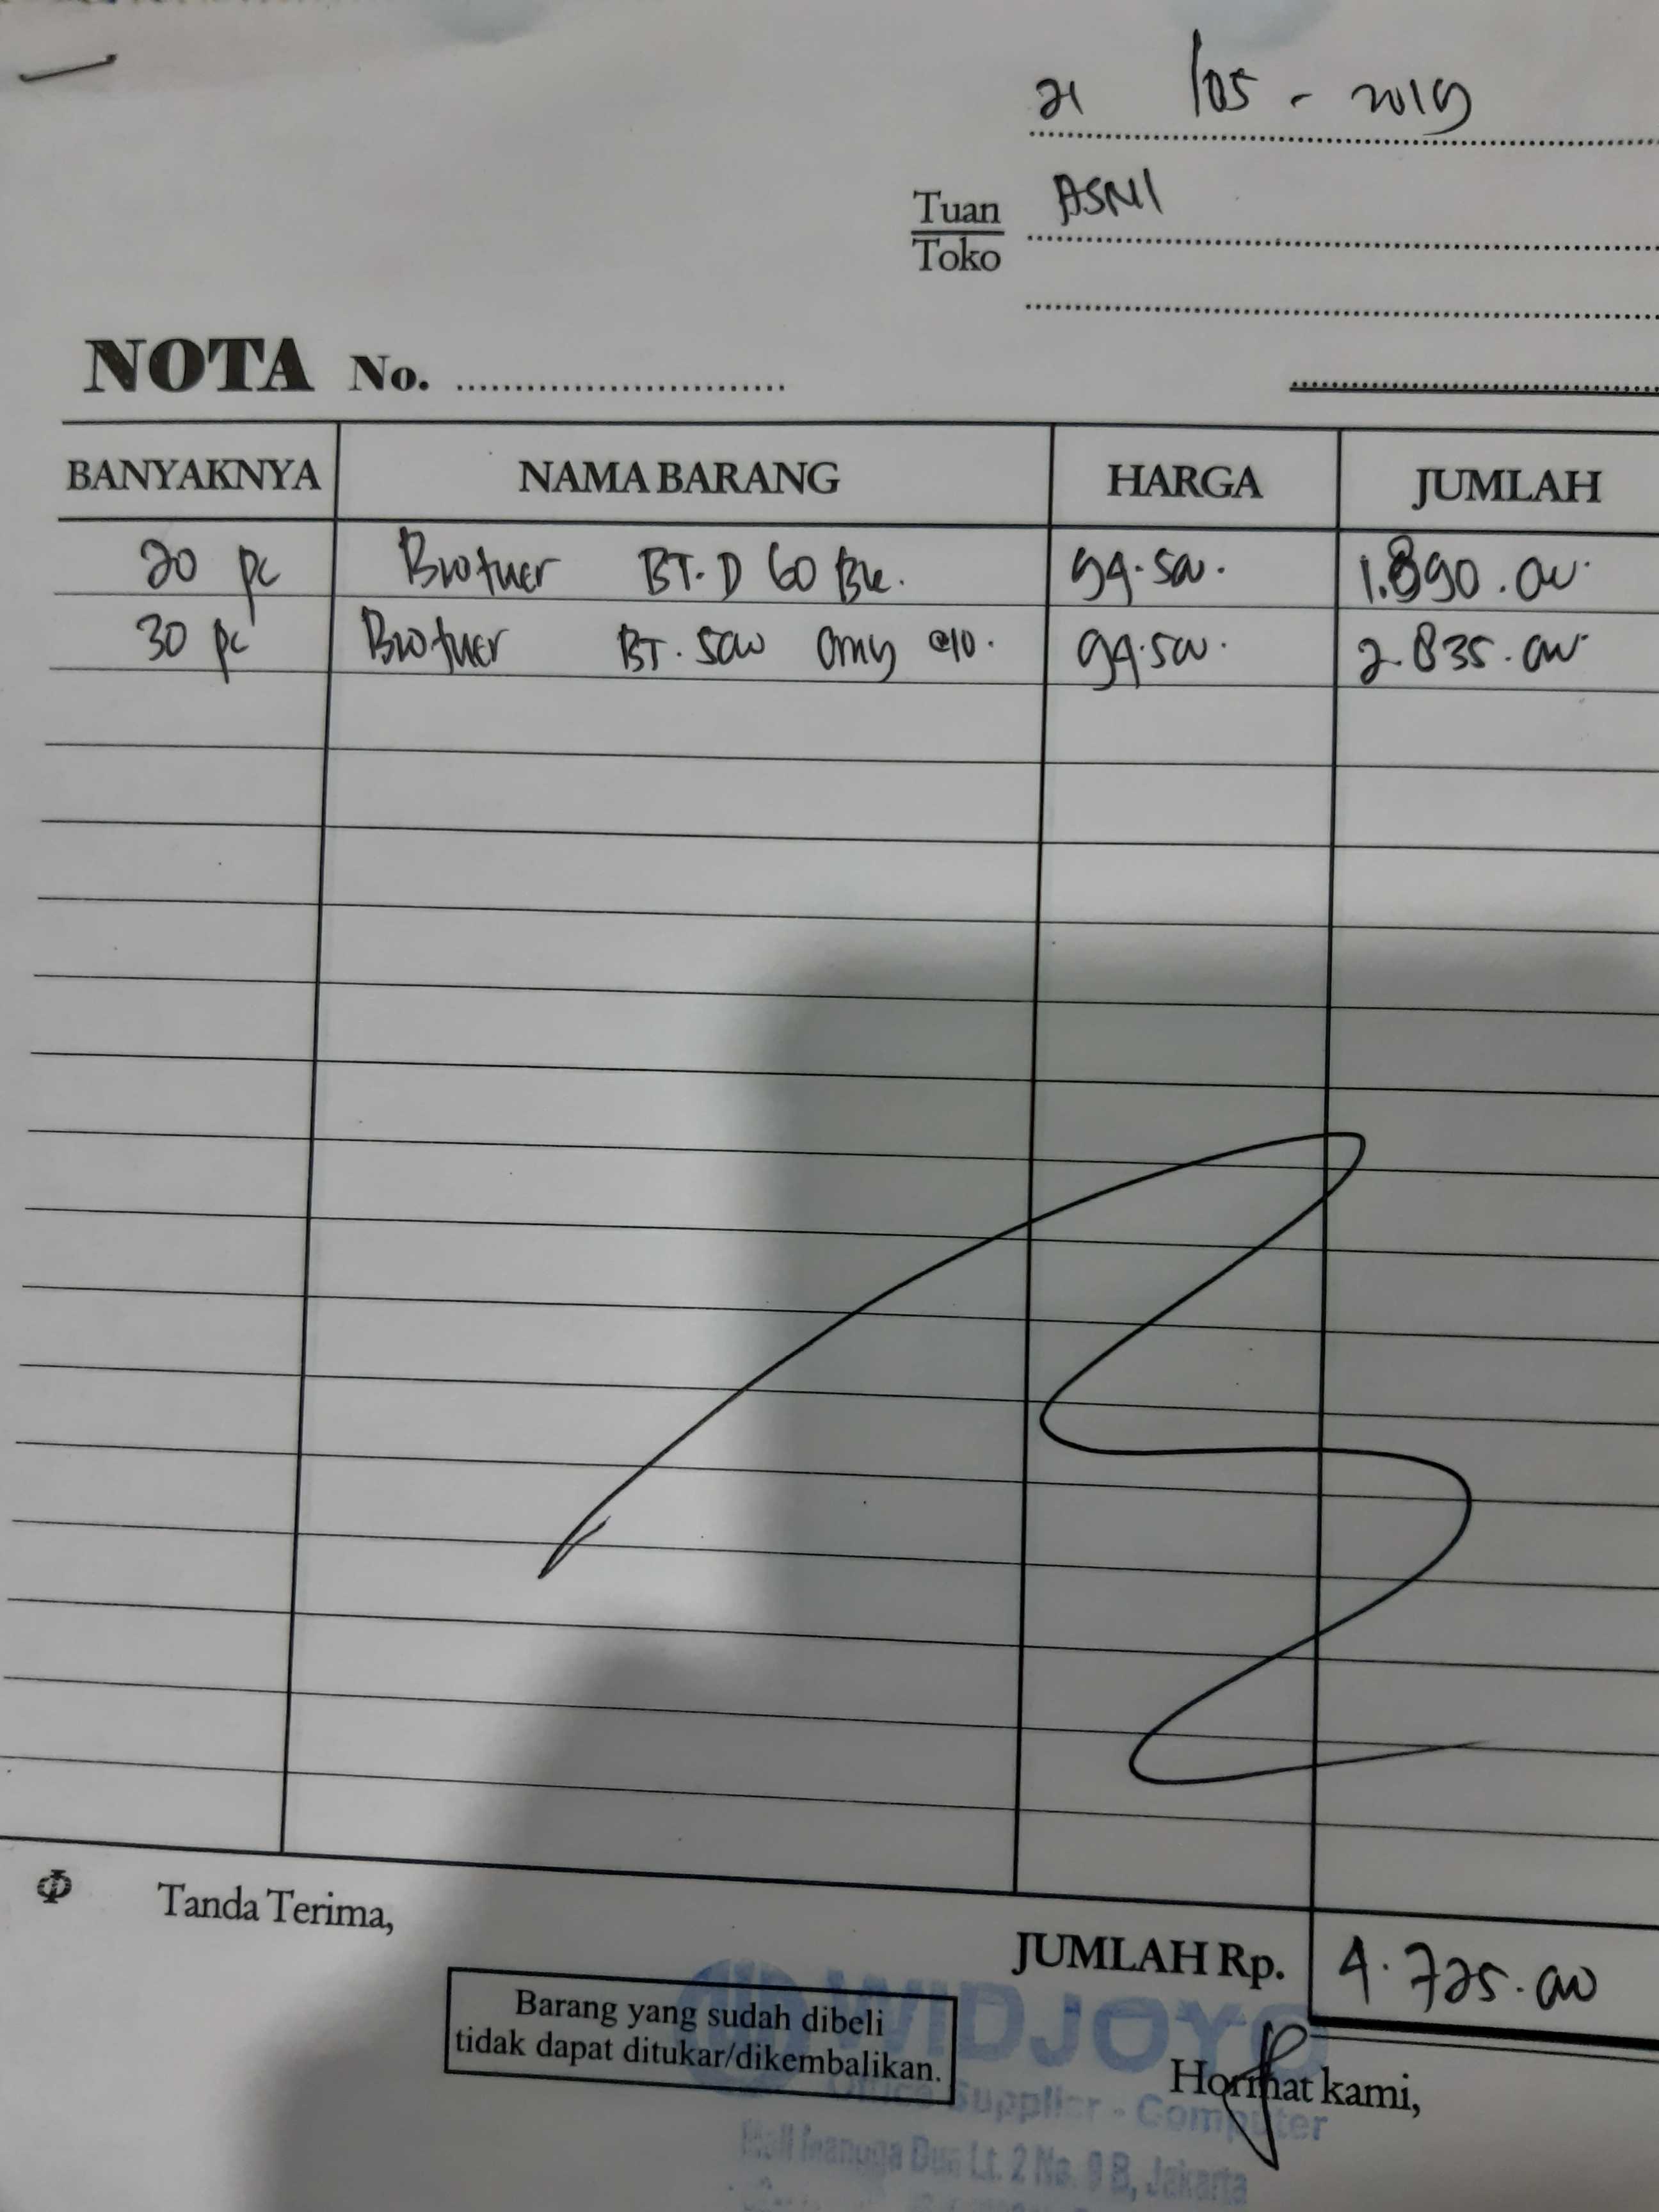 21 /05 - 2019
Tuan
Toko
ASNI
NOTA No.
BANYAKNYA NAMA BARANG HARGA JUMLAH
20 pc Brother BT.D 60 Bk. 94.500. 1.890.000
30 pc Brother BT.5000 cmy @10. 94.500. 2.835.000
Tanda Terima,
JUMLAH Rp. 4.725.000
Barang yang sudah dibeli
tidak dapat ditukar/dikembalikan.
WIDJOYO
Hormat kami,
Office Supplier - Computer
Mall Mangga Dua Lt. 2 No. 9 B, Jakarta